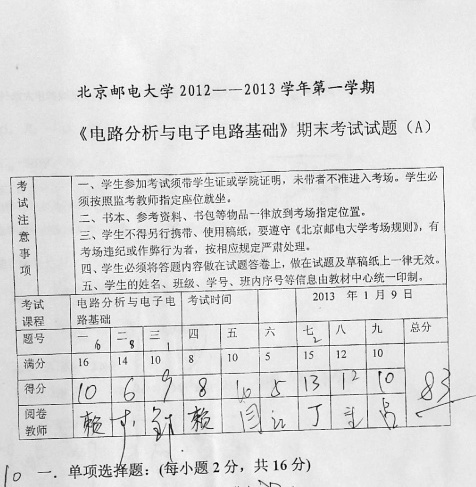 北京邮电大学2012——2013学年第一学期
《电路分析与电子电路基础》期末考试试题（A）
考试注意事项
一、学生参加考试须带学生证或学院证明，未带者不准进入考场。学生必
须按照监考教师指定座位就坐。
二、书本、参考资料、书包等物品一律放到考场指定位置。
三、学生不得另行携带、使用稿纸，要遵守《北京邮电大学考场规则》，有
考场违纪或作弊行为者，按相应规定严肃处理。
四、学生必须将答题内容做在试题答卷上，做在试题及草稿纸上一律无效。
五、学生的姓名、班级、学号、班内序号等信息由教材中心统一印制。
考试课程 电路分析与电子电路基础 考试时间 2013 年 1 月 9 日
题号 一 二 三 四 五 六 七 八 九 总分
6 8 1 2
满分 16 14 10 8 10 5 15 12 10
得分 10 6 9 8 10 5 13 12 10 83
阅卷教师 赖 赖 闫 丁
10 一．单项选择题：(每小题 2 分，共 16 分)